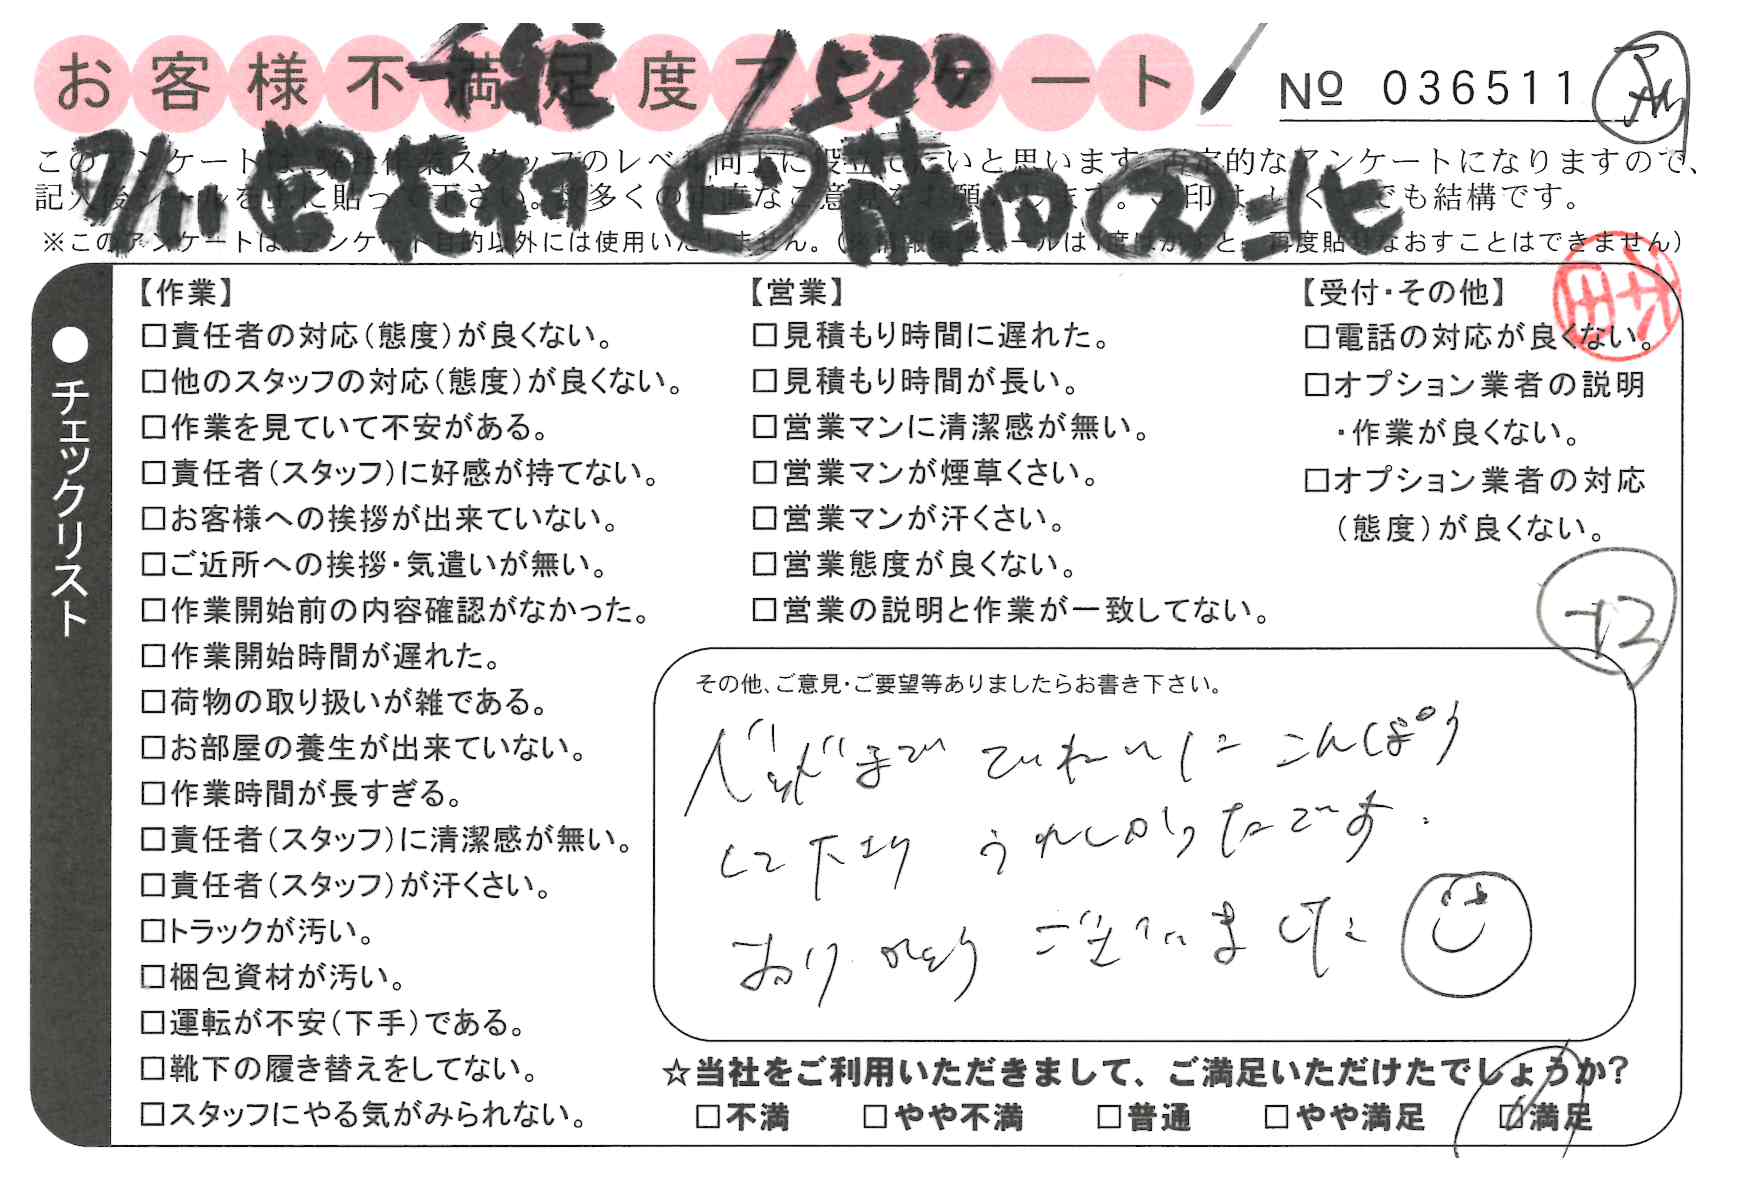 お客様不満足度アンケート
№ 036511
千住 1520
7/11 営 花初 ㋣ 藤岡 ㋜ 北
このアンケートは、弊社作業スタッフのレベル向上に役立てたいと思います。否定的なアンケートになりますので、
記入後シールを上に貼って下さい。数多くの正直なご意見をお願いします。✓印は、いくつでも結構です。
※このアンケートは、アンケート目的以外には使用いたしません。(※情報保護シールは1度はがすと、再度貼りなおすことはできません)
●チェックリスト
【作業】
□責任者の対応(態度)が良くない。
□他のスタッフの対応(態度)が良くない。
□作業を見ていて不安がある。
□責任者(スタッフ)に好感が持てない。
□お客様への挨拶が出来ていない。
□ご近所への挨拶・気遣いが無い。
□作業開始前の内容確認がなかった。
□作業開始時間が遅れた。
□荷物の取り扱いが雑である。
□お部屋の養生が出来ていない。
□作業時間が長すぎる。
□責任者(スタッフ)に清潔感が無い。
□責任者(スタッフ)が汗くさい。
□トラックが汚い。
□梱包資材が汚い。
□運転が不安(下手)である。
□靴下の履き替えをしてない。
□スタッフにやる気がみられない。
【営業】
□見積もり時間に遅れた。
□見積もり時間が長い。
□営業マンに清潔感が無い。
□営業マンが煙草くさい。
□営業マンが汗くさい。
□営業態度が良くない。
□営業の説明と作業が一致してない。
【受付・その他】
□電話の対応が良くない。
□オプション業者の説明
・作業が良くない。
□オプション業者の対応
(態度)が良くない。
+2
その他、ご意見・ご要望等ありましたらお書き下さい。
ベッドまで ていねいに こんぽう
して下さり うれしかったです.
ありがとう ございました
☆当社をご利用いただきまして、ご満足いただけたでしょうか?
□不満 □やや不満 □普通 □やや満足 □満足